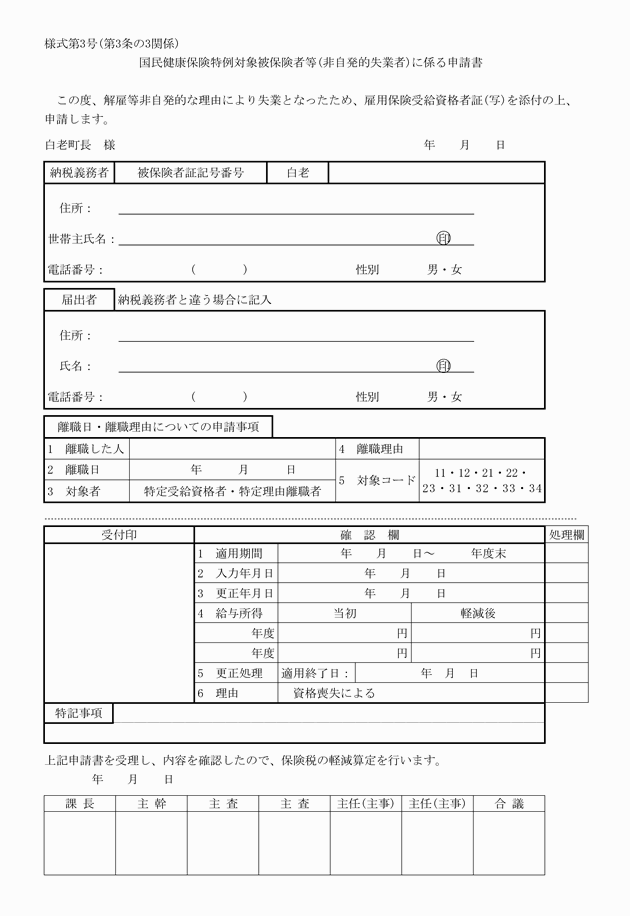 様式第3号(第3条の3関係)
国民健康保険特例対象被保険者等(非自発的失業者)に係る申請書
この度、解雇等非自発的な理由により失業となったため、雇用保険受給資格者証(写)を添付の上、
申請します。
白老町長　様　　年　　月　　日
納税義務者　被保険者証記号番号　白老
住所：
世帯主氏名：　　㊞
電話番号：　　(　　　)　　性別　　男・女
届出者　納税義務者と違う場合に記入
住所：
氏名：　　㊞
電話番号：　　(　　　)　　性別　　男・女
離職日・離職理由についての申請事項
1　離職した人　　4　離職理由
2　離職日　　年　　月　　日　　5　対象コード　11・12・21・22・
3　対象者　特定受給資格者・特定理由離職者　23・31・32・33・34
受付印　確　認　欄　処理欄
1　適用期間　　年　　月　　日～　　年度末
2　入力年月日　　年　　月　　日
3　更正年月日　　年　　月　　日
4　給与所得　当初　軽減後
年度　円　円
年度　円　円
5　更正処理　適用終了日：　年　月　日
6　理由　資格喪失による
特記事項
上記申請書を受理し、内容を確認したので、保険税の軽減算定を行います。
年　　月　　日
課 長　主 幹　主 査　主 査　主任(主事)　主任(主事)　合 議